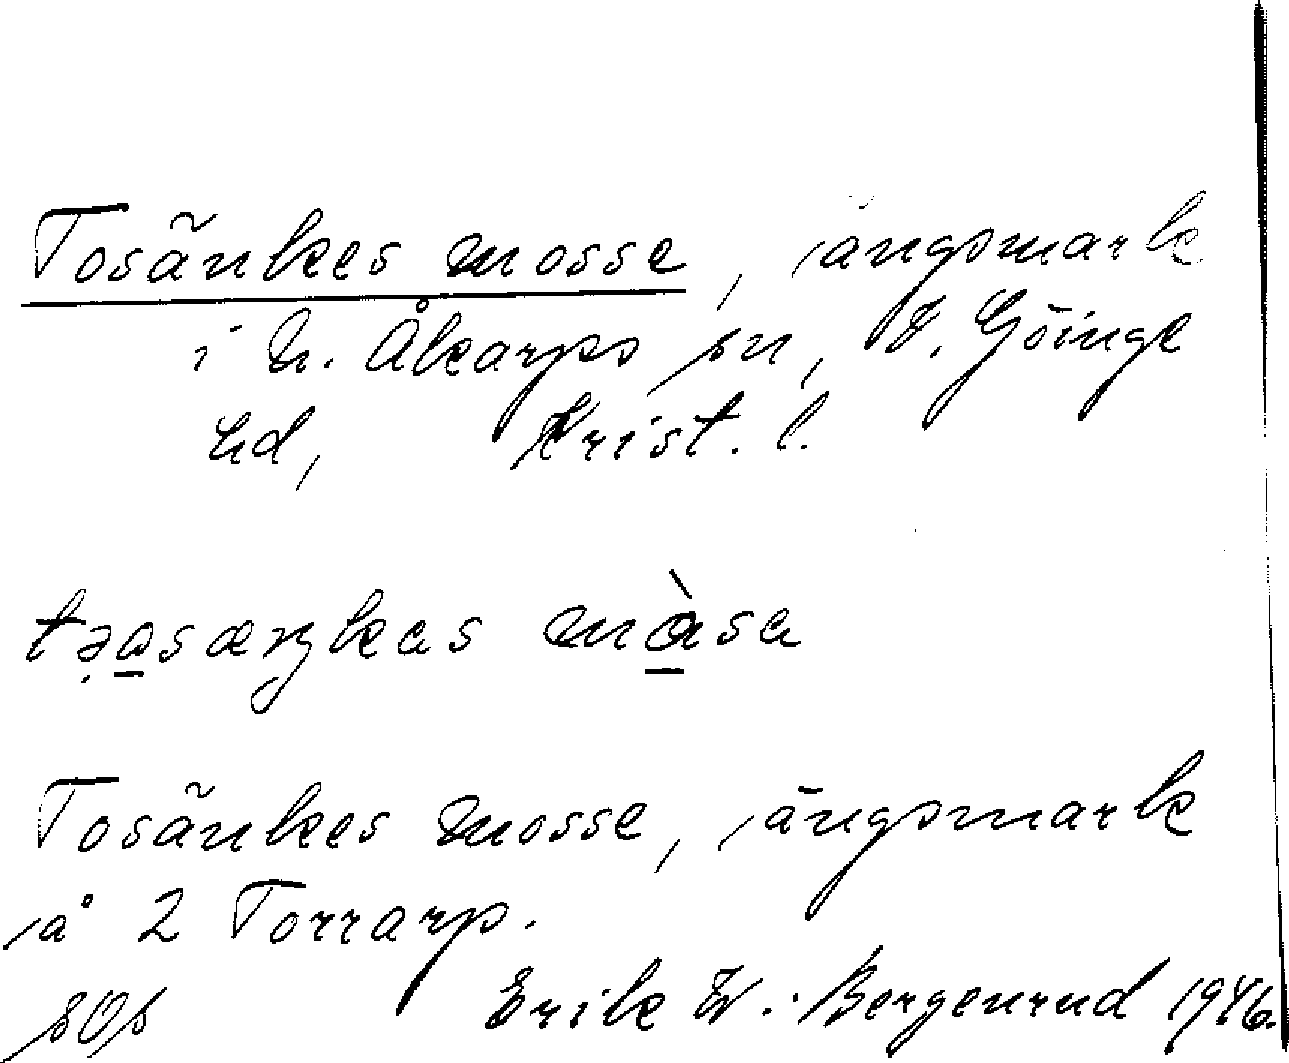 Tosänkes mosse, ängsmark
i N. Åkarps sn, V. Göinge
hd, Krist. l.
tə̣a̲sæŋkas mà̲sa
Tosänkes mosse, ängsmark
å 2 Torrarp.
Erik W. Bergenrud 1946.